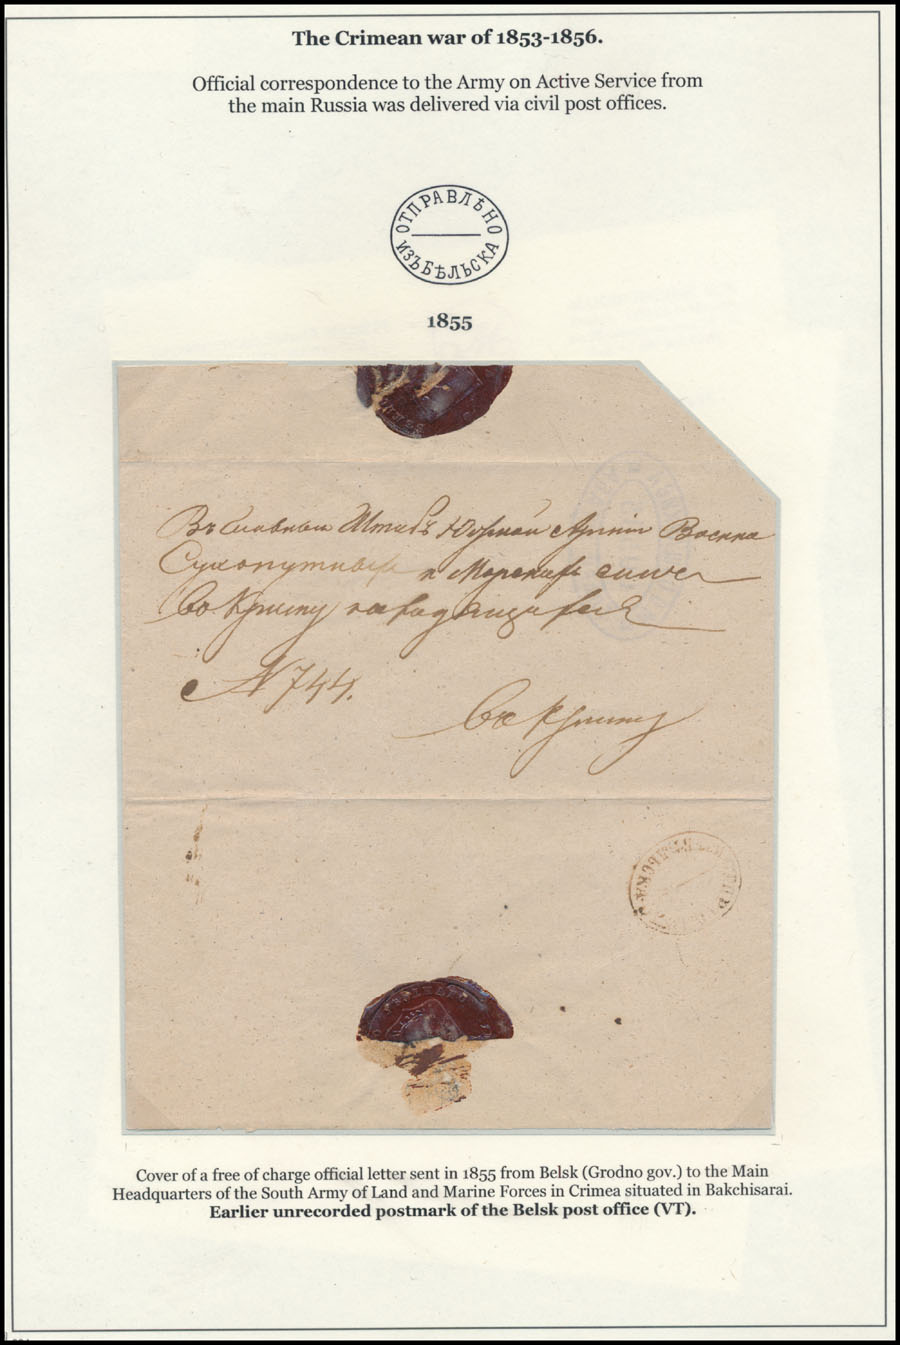 The Crimean war of 1853-1856.
Official correspondence to the Army on Active Service from
the main Russia was delivered via civil post offices.
ОТПРАВЛѢНО
ИЗЪ БѢЛЬСКА
1855
Въ Главный Штабъ Южной Арміи Военно
Сухопутных и Морских силъ
въ Крыму находящихся
№ 744.
Въ Крыму
Cover of a free of charge official letter sent in 1855 from Belsk (Grodno gov.) to the Main
Headquarters of the South Army of Land and Marine Forces in Crimea situated in Bakchisarai.
Earlier unrecorded postmark of the Belsk post office (VT).